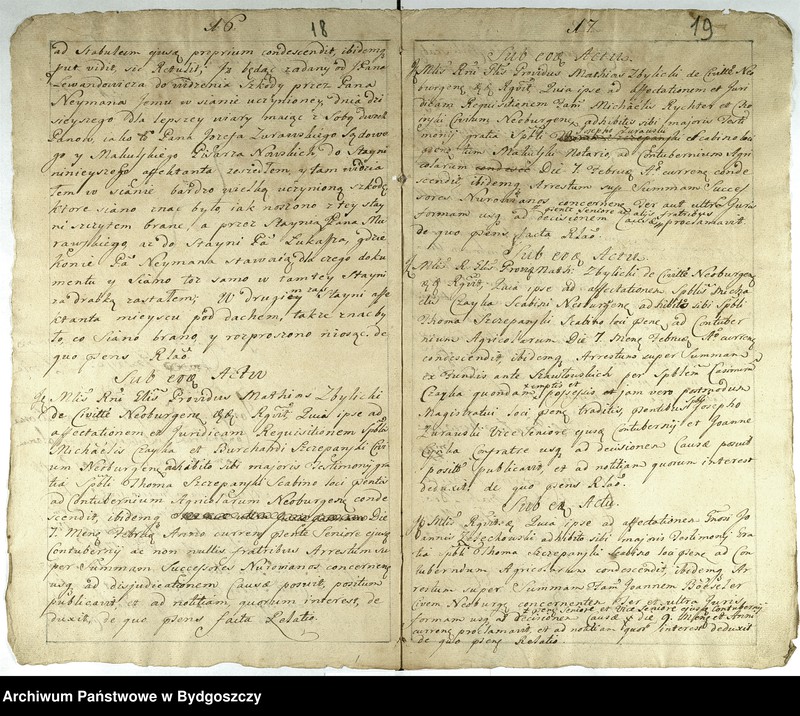 16. 18
ad Stabulum ejusq proprium condescendit, ibidemq
put vidit, sic Retulit; Iż będąc zadany od Pana
Lewandowicza do widzenia Szkody przez Pana
Neymana Jemu w sianie uczynioney, dnia dzi
sieyszego dla lepszey wiary maiąc z Sobą dwóch
Panow, iako to Pana Jozefa Zurawskiego Sądowe
go y Makulskiego Pisarza Nowskich do Stayni
ninieyszego affektanta zeszedłem, y tam widzia
łem w sianie bardzo wielką uczynioną szkodę
ktore siano znać było iak noszono z tey stay
ni szczytem brane, a przez Staynią Pana Mu
rawskiego, aż do Stayni Pa Lukasza, gdzie
Konie Pa Neymana stawaią, dla czego doku
mentu y Siano toż samo w tamtey Stayni
za drabką zastałem; W drugiey zaś Stayni affe
ktanta mieyscu pod dachem, także znać by
ło, co Siano brano, y rozproszono niosąc, de
quo psens Rlão.
Sub eoq Actu
Mtis Rni Elis Providus Mathias Zbylicki
de Civitte Neoburgens qq Rgvit, Quia ipse ad
affectationem et Juridicam Requisitionem Spblis
Michaelis Czayka et Burchardi Szczepanski Civi
um Neoburgens adhibito sibi majoris Testimonij gra
tia Spbli Thoma Szczepanski Scabino loci psentis
ad Contubernium Agricolarum Neoburgens conde
scendit, ibidemq Die
7. Mens Febru Anno currens psente Seniore ejusq
Contubernij ac non nullis fratribus Arrestum su
per Summam Successores Nurowianos concernens
usq ad disjudicationem Causæ posuit, positum
publicavit et ad notitiam quorum interest, de
duxit, de quo psens facta Relatio.
17. 19
Sub eoq Actu.
Mtis Rni Elis Providus Mathias Zbylicki de Civitte Neo
burgens qq Rgvit Quia ipse ad affectationem et Juri
dicam Requisitionem Fam Michaelis Rychter et Cho
Civium Neoburgens, adhibitis sibi majoris Testi
monij gratia Spbli Josepho Zurawski et Scabino loci
psens tum Makulski Notario, ad Contubernium Agri
colarum Die 7. Febru Ao currens conde
scendit, ibidemq Arrestum sup Summam Succes
sores Nurowianos concernens Ter aut ultra Juris
formam usq ad decisionem Causæ proclamavit
psente Seniore et aliis fratribus
de quo psens facta Rlão.
Sub eoq Actu
Mtis R Elis Provus Math: Zbylicki de Civitte Neoburgens
qq Rgvit, Quia ipse ad affectationem Spblis Micha
elis Czayka Scabini Neoburgens adhibito sibi Spbli
Thoma Szczepanski Scabino loci psens ad Contuber
nium Agricolarum Die 7. Mens Februa Ao currens
condescendit, ibidemq Arrestum super Summam
ex Fundis ante Szawłowskich per Spblem Casimirum
Czayka quondam exemptis et possessis et jam vero postmodum
Magistratui loci psens traditis, psentibus Spbli Josepho
Zurawski Vice Seniore ejusq Contubernij et Joanne
Czayka Confratre usq ad decisionem Causæ posuit
positum publicavit, et ad notitiam quorum interest
deduxit. de quo psens Rlão.
Sub eoq Actu.
Mtis Rgvit Quia ipse ad affectationem Fmi Jo
annis Zołęchowski adhibito sibi majoris Testimonij Gra
tia Spbli Thoma Szczepanski Scabino loci psens ad Con
tubernium Agricolarum condescendit, ibidemq Ar
restum super Summam Fam Joannem Böhseler
Civem Neoburg. concernentem ter et ultra Juris
formam usq ad decisionem Causæ die 9. Mens et Anni
psente Seniore et Vice Seniore ejusq Contubernij
currens proclamavit, et ad notitiam quor interest deduxit
de quo psens Relatio.
Archiwum Państwowe w Bydgoszczy